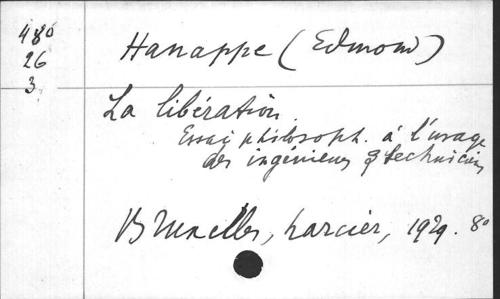 480
26
3
Hanappe (Edmond)
La libération.
Essai philosoph. à l'usage
des ingénieurs & techniciens
Bruxelles, Larcier, 1929. 8°